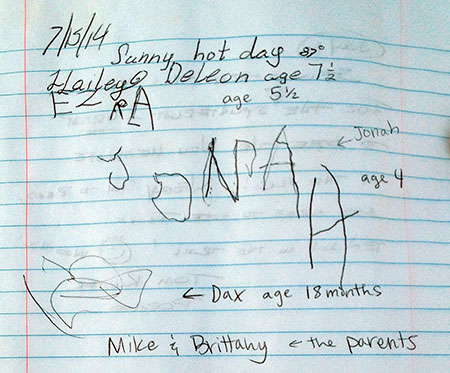 7/15/14
Sunny hot day 87°
Hailey DeLeon age 7 ½
EZRA age 5 ½
JONAH ← Jonah
age 4
← Dax age 18 months
Mike & Brittany ← the parents